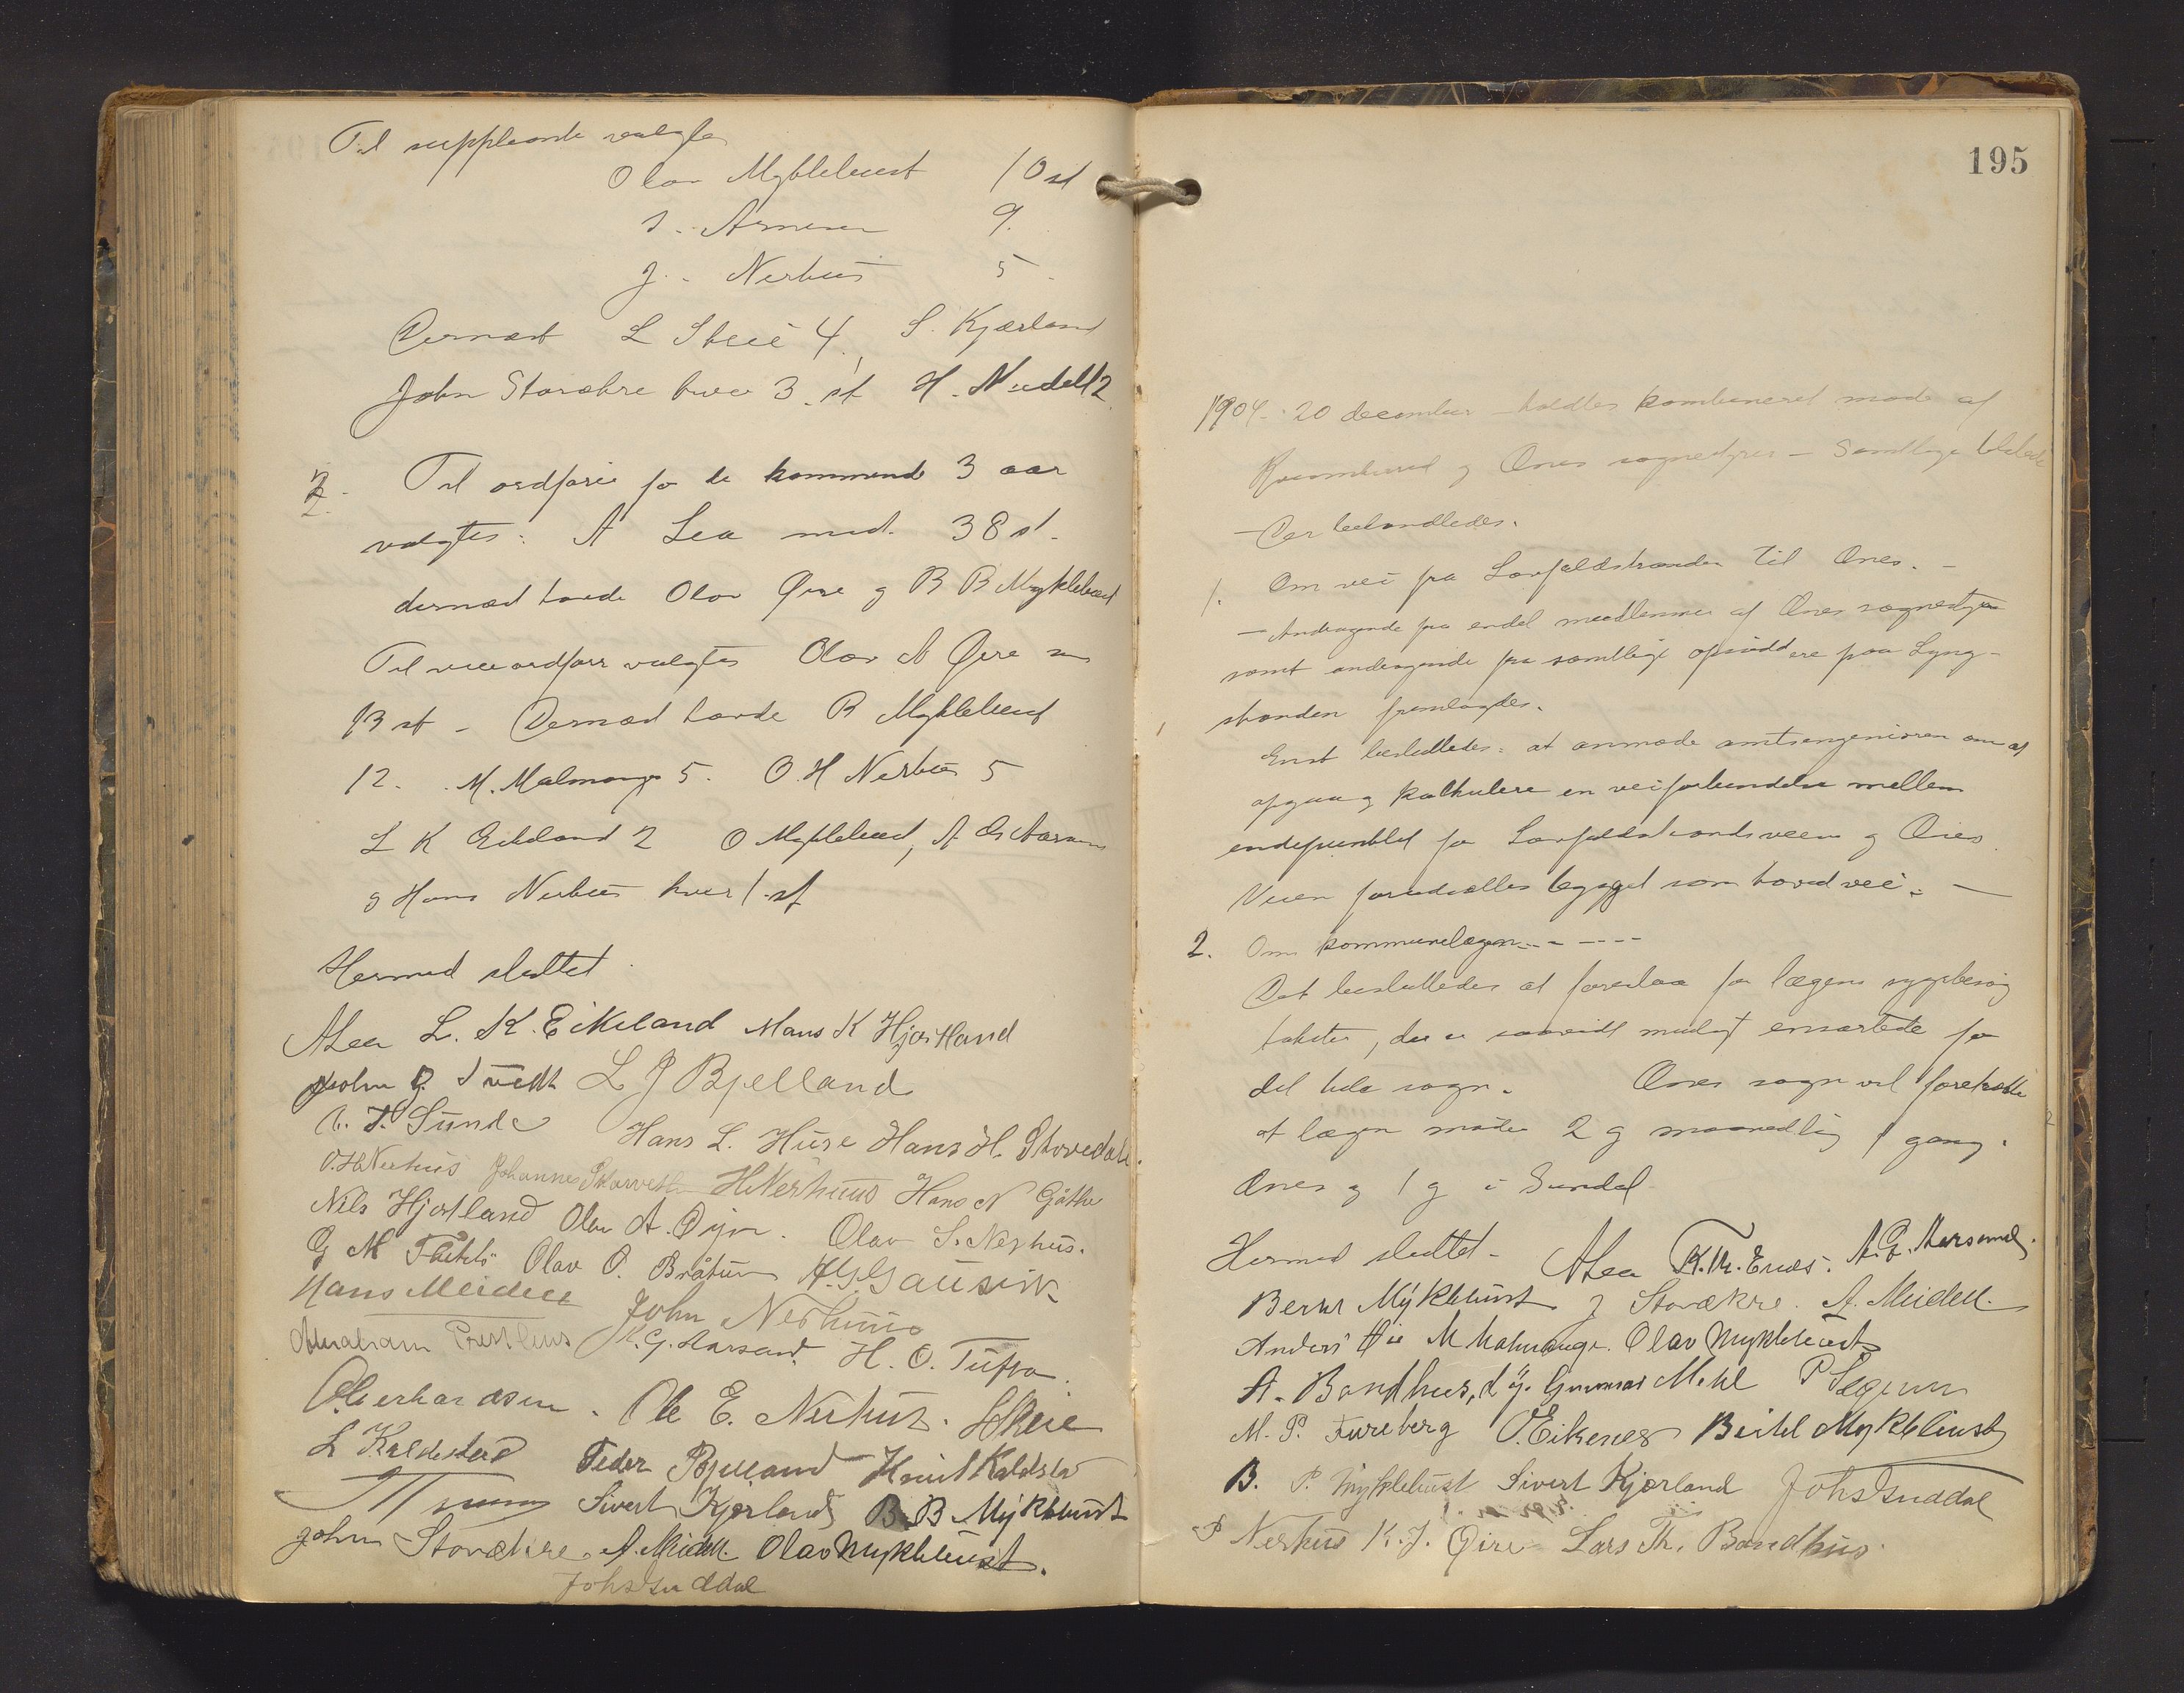 Til suppleante valgtes
Olav Myklebust 10 st
S. Arnesen 9.
J. Nerhus 5
Dernæst L Skeie 4, S. Kjærland
John Storækre hver 3 st H. Meidell 2
2. Til ordfører for de kommende 3 aar
valgtes: A Lea med 38 st.
dernæst havde Olav Øire og B B Myklebust
Til viceordfører valgtes Olav A Øire med
13 st - Dernæst havde B Myklebust
12. M. Malmange 5. O. H Nerhus 5
L K Eikeland 2 O Myklebust, A G Aarsand
og Hans Nerhus hver 1 st
Hermed sluttet.
A Lea L. K. Eikeland Mans K Hjortland
John G. Tvedt L J Bjelland
A. T. Sunde Hans L. Huse Hans H. Skovedal.
O. H Nerhus Johannes Skarveth H Nerhuus Hans N Gjøthe
Nils Hjortland Olav A. Øijre. Olav S. Nerhus.
G M Olav O. Bråtun H. G. Gausvik
Hans Meidell John Nerhuus
Abraham Presthus A. G. Aarsand. H. O. Tufra.
O. Gerhardsen. Ole E. Nerhus. L Skeie
L Kaldestad Peder Bjelland Knut Kaldestad
Sivert Kjerland B. B Myklebust
John Storækre. A. Meidell. Olav Myklebust.
Johs Guddal
195
1904. 20 december holdtes kombineret møde af
Kvamherred og Ænes sognestyrer - Samtlige tilstede
- Der behandledes.
1. Om vei fra Lovfaldstranden til Ænes. -
- Andragende fra endel medlemmer af Ænes sognestyre
samt andragende fra samtlige opsiddere paa Lyng-
stranden fremlagdes.
Enst besluttedes: at anmode amtsingeniøren om at
opgaa og kalkulere en veiforbindelse mellem
endepunktet for Lovfaldstrandsveien og Ænes.
Veien forudsættes bygget som hovedvei. -
2. Om kommunelægen. - - - -
Det besluttedes at foreslaa for lægens sygebesøg
takster, der er saavidt muligt ensartede for
det hele sogn. Ænes sogn vil foretrække
at lægen møder 2 g maanedlig 1 gang i
Ænes og 1 g i Sundal
Hermed sluttet - A Lea K. Th. Enæs. A. G. Aarsand.
Berner Myklebust J Storækre. A. Meidell.
Anders Hie M Malmange. Olav Myklebust
A. Bondhus, d. y. Gunnar Mehl P Segrem
M. P. Fureberg O. Eikenes Bertel Myklebust
B. P. Myklebust Sivert Kjærland Johs Guddal
P Nerhus K. J. Øire Lars Th. Bondhus